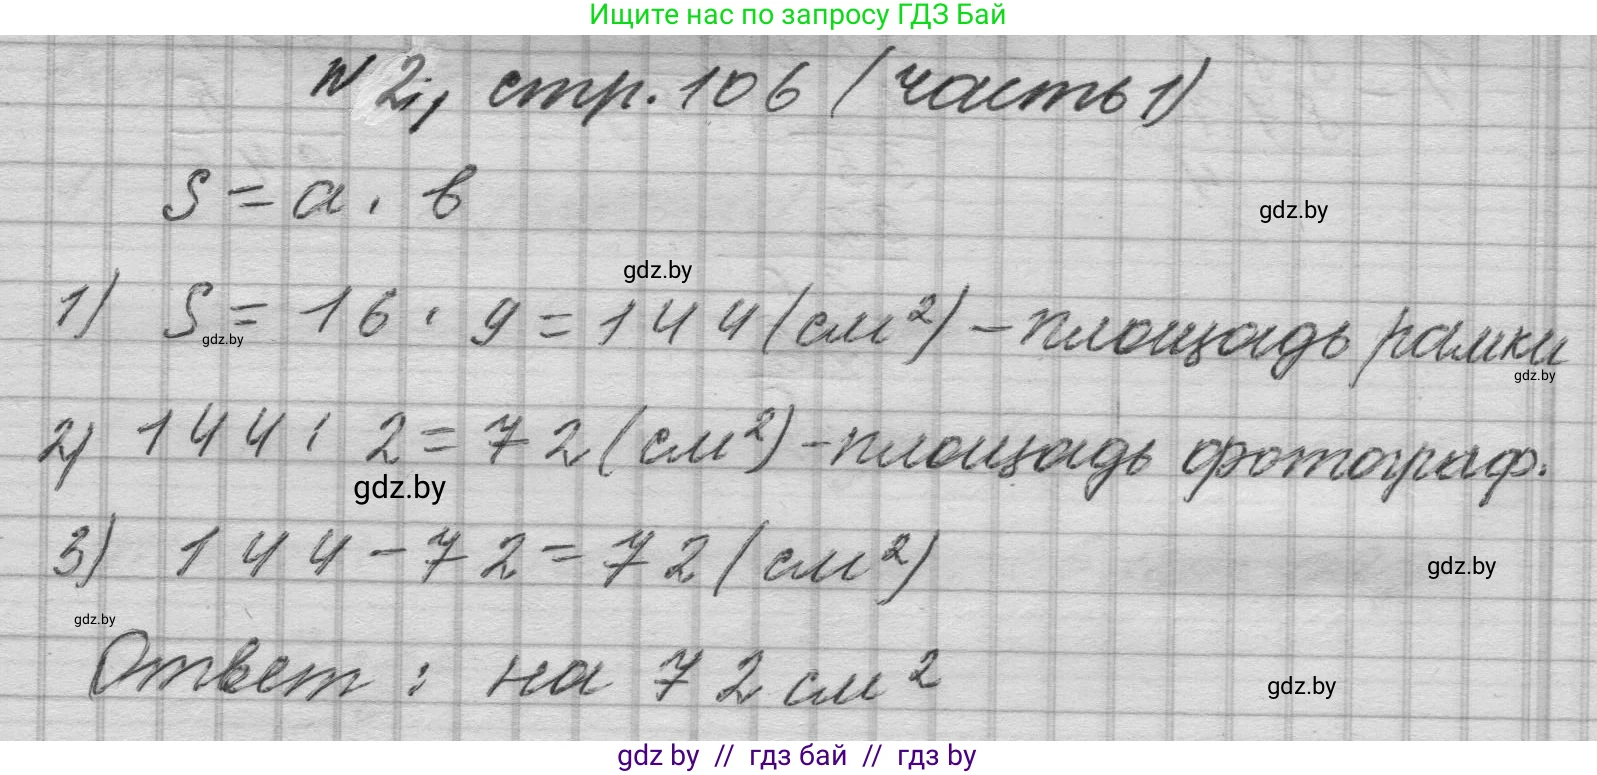 Ищите нас по запросу ГДЗ Бай
№ 2, стр. 106 (часть 1)
S = a · b
gdz.by
gdz.by
1) S = 16 · 9 = 144 (см²) – площадь рамки
gdz.by
gdz.by
2) 144 : 2 = 72 (см²) – площадь фотограф.
gdz.by
3) 144 – 72 = 72 (см²)
gdz.by
gdz.by
Ответ : на 72 см²
gdz.by
gdz by // гдз бай // гдз by